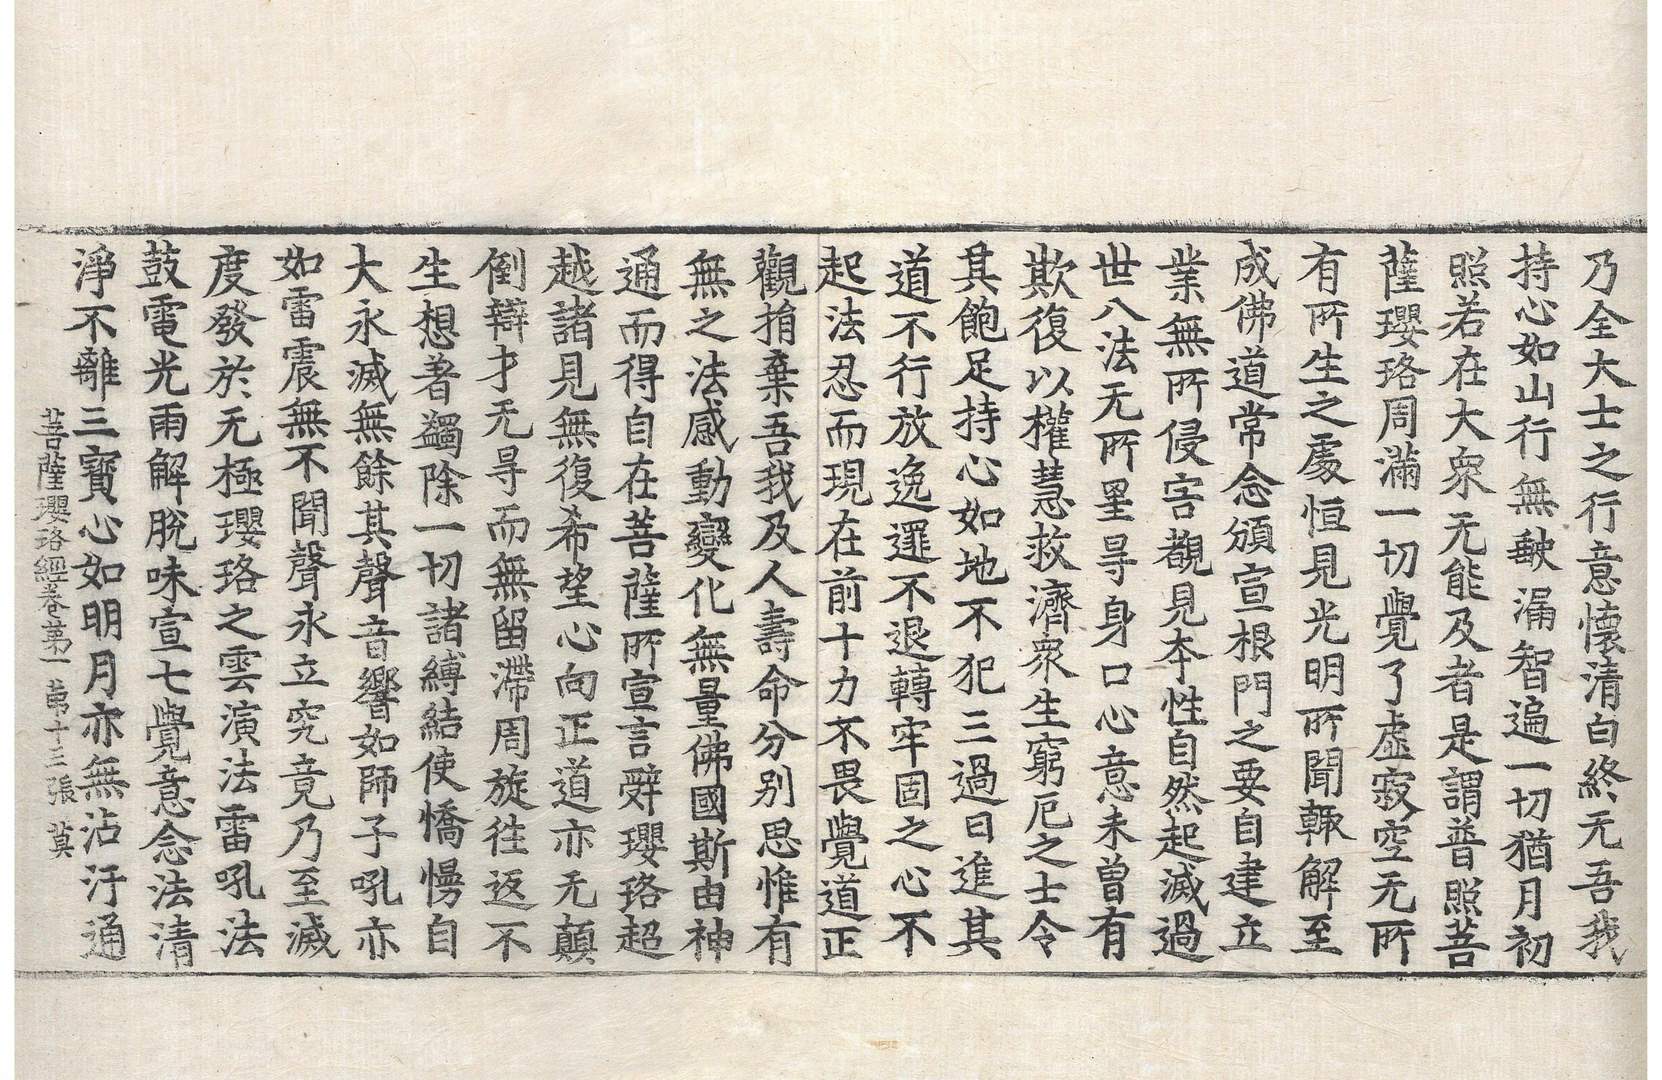 乃全大士之行意懷清白終无吾我
持心如山行無䡄漏智遍一切猶月初
照若在大衆无能及者是謂普照菩
薩瓔珞周滿一切覺了虛寂空无所
有所生之處恒見光明所聞輒解至
成佛道常念頒宣根門之要自建立
業無所侵害觀見本性自然起滅過
世八法无所罣㝵身口心意未曾有
欺復以權慧救濟衆生窮厄之士令
其飽足持心如地不犯三過日進其
道不行放逸邏不退轉牢固之心不
起法忍而現在前十力不畏覺道正
觀捐棄吾我及人壽命分别思惟有
無之法感動變化無量佛國斯由神
通而得自在菩薩所宣言辤瓔珞超
越諸見無復希望心向正道亦无顛
倒辯才无㝵而無留滯周旋往返不
生想著蠲除一切諸縛結使憍慢自
大永滅無餘其聲音響如師子吼亦
如雷震無不聞聲永立究竟乃至滅
度發於无極瓔珞之雲演法雷吼法
鼓電光雨解脫味宣七覺意念法清
淨不離三寶心如明月亦無沾汙通
菩薩瓔珞經卷第一 苐十三張 莫